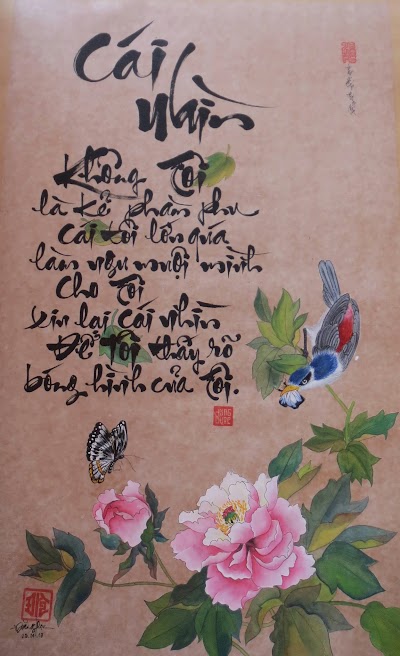 Cái
Nhìn
Không Tôi
là kẻ phàm phu
cái tôi lớn quá
làm ngu muội mình
Cho Tôi
xin lại cái nhìn
Để Tôi thấy rõ
bóng hình của Tôi.